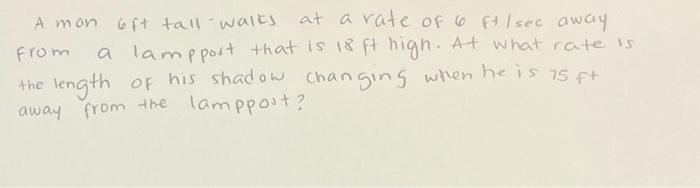 A man 6ft tall walks at a rate of 6 ft/sec away
from a lamppost that is 18 ft high. At what rate is
the length of his shadow changing when he is 75 ft
away from the lamppost?